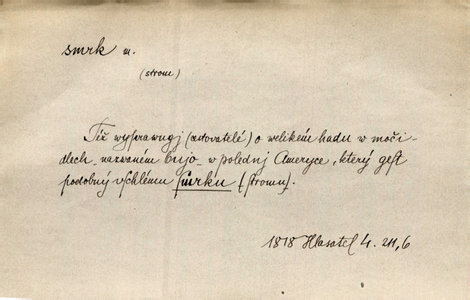 smrk m.
(strom)
Též wyprawugj (cestovatelé) o welikém hadu w moči-
dlech, nazwaném bojo, w polednj Ameryce, který gest
podobný uschlému smrku (stromu).
1818 Hlasatel 4. 211,6